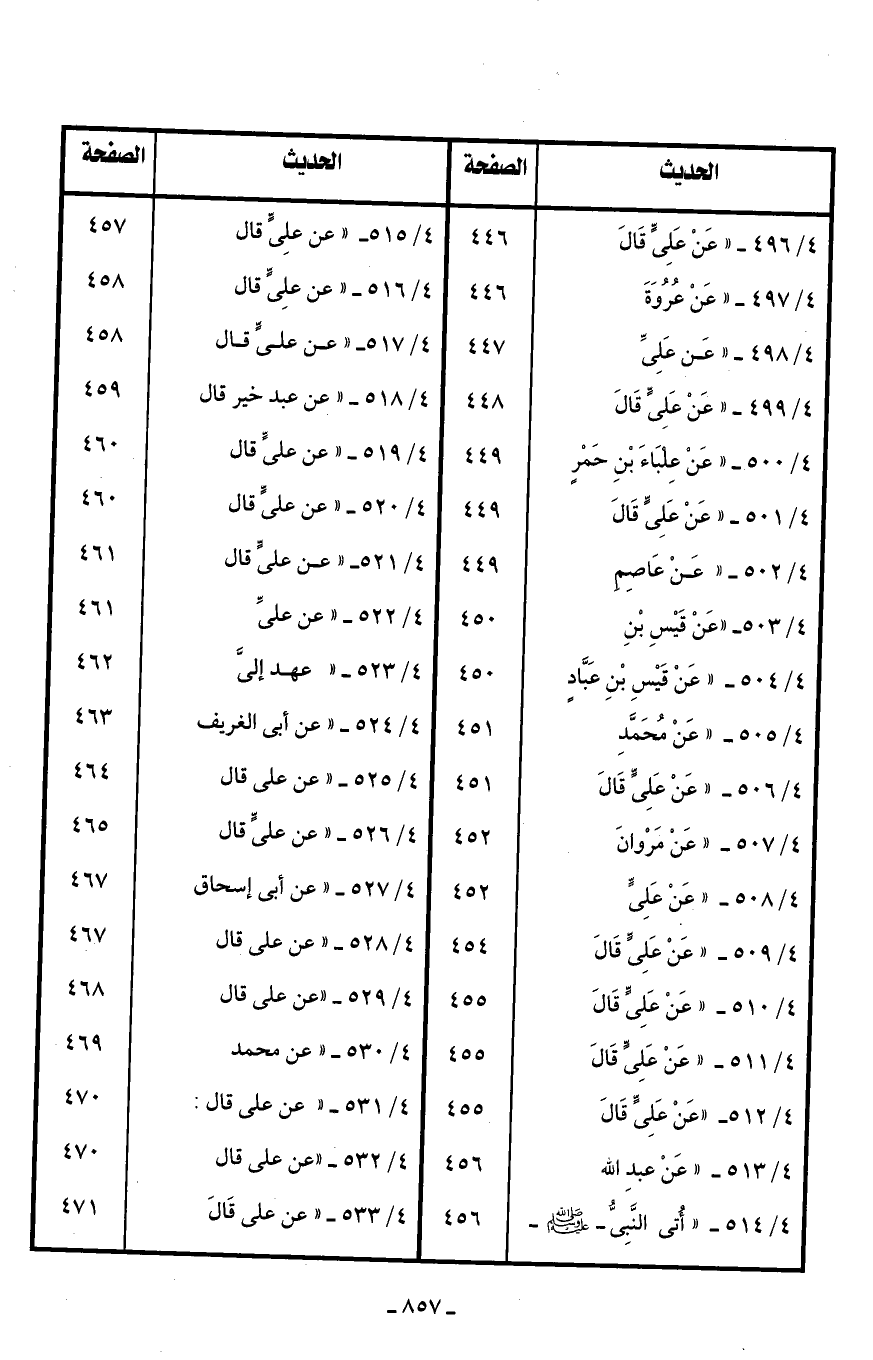 الحديث الصفحة الحديث الصفحة
٤/ ٤٩٦ ـ « عَنْ عَلِىٍّ قَالَ ٤٤٦ ٤/ ٥١٥ـ « عن علِىٍّ قال ٤٥٧
٤/ ٤٩٧ ـ « عَنْ عُرْوَةَ ٤٤٦ ٤/ ٥١٦ـ « عن علِىٍّ قال ٤٥٨
٤/ ٤٩٨ ـ « عَـن عَلِىِّ ٤٤٧ ٤/ ٥١٧ـ « عـن علـىٍّ قـال ٤٥٨
٤/ ٤٩٩ ـ « عَنْ عَلِىٍّ قَالَ ٤٤٨ ٤/ ٥١٨ ـ « عن عبد خير قال ٤٥٩
٤/ ٥٠٠ ـ « عَنْ عِلْبَاءَ بْنِ حَمْرٍ ٤٤٩ ٤/ ٥١٩ ـ « عن علىٍّ قال ٤٦٠
٤/ ٥٠١ ـ « عَنْ عَلِىٍّ قَالَ ٤٤٩ ٤/ ٥٢٠ ـ « عن علىٍّ قال ٤٦٠
٤/ ٥٠٢ ـ « عَـنْ عَاصِمِ ٤٤٩ ٤/ ٥٢١ـ « عـن علىٍّ قال ٤٦١
٤/ ٥٠٣ـ «عَنْ قَيْسِ بْنِ ٤٥٠ ٤/ ٥٢٢ ـ « عن علىِّ ٤٦١
٤/ ٥٠٤ ـ « عَنْ قَيْسِ بْنِ عَبَّادٍ ٤٥٠ ٤/ ٥٢٣ ـ « عهـد إلىَّ ٤٦٢
٤/ ٥٠٥ ـ « عَنْ مُحَمَّدِ ٤٥١ ٤/ ٥٢٤ ـ « عن أبى الغريف ٤٦٣
٤/ ٥٠٦ ـ « عَنْ عَلِىٍّ قَالَ ٤٥١ ٤/ ٥٢٥ ـ « عن على قال ٤٦٤
٤/ ٥٠٧ ـ « عَنْ مَرْوَانَ ٤٥٢ ٤/ ٥٢٦ ـ « عن علىٍّ قال ٤٦٥
٤/ ٥٠٨ ـ « عَنْ عَلِىٍّ ٤٥٢ ٤/ ٥٢٧ ـ « عن أبى إسحاق ٤٦٧
٤/ ٥٠٩ ـ « عَنْ عَلِىٍّ قَالَ ٤٥٤ ٤/ ٥٢٨ ـ « عن على قال ٤٦٧
٤/ ٥١٠ ـ « عَنْ عَلِىٍّ قَالَ ٤٥٥ ٤/ ٥٢٩ ـ «عن على قال ٤٦٨
٤/ ٥١١ ـ « عَنْ عَلِىٍّ قَالَ ٤٥٥ ٤/ ٥٣٠ ـ « عن محمد ٤٦٩
٤/ ٥١٢ـ «عَنْ عَلِىٍّ قَالَ ٤٥٥ ٤/ ٥٣١ ـ « عن على قال : ٤٧٠
٤/ ٥١٣ ـ « عَنْ عبدِ الله ٤٥٦ ٤/ ٥٣٢ ـ «عن على قال ٤٧٠
٤/ ٥١٤ ـ « أُتى النَّبِىُّ ـ ﷺ ـ ٤٥٦ ٤/ ٥٣٣ ـ « عن على قَالَ ٤٧١
ـ ٨٥٧ ـ